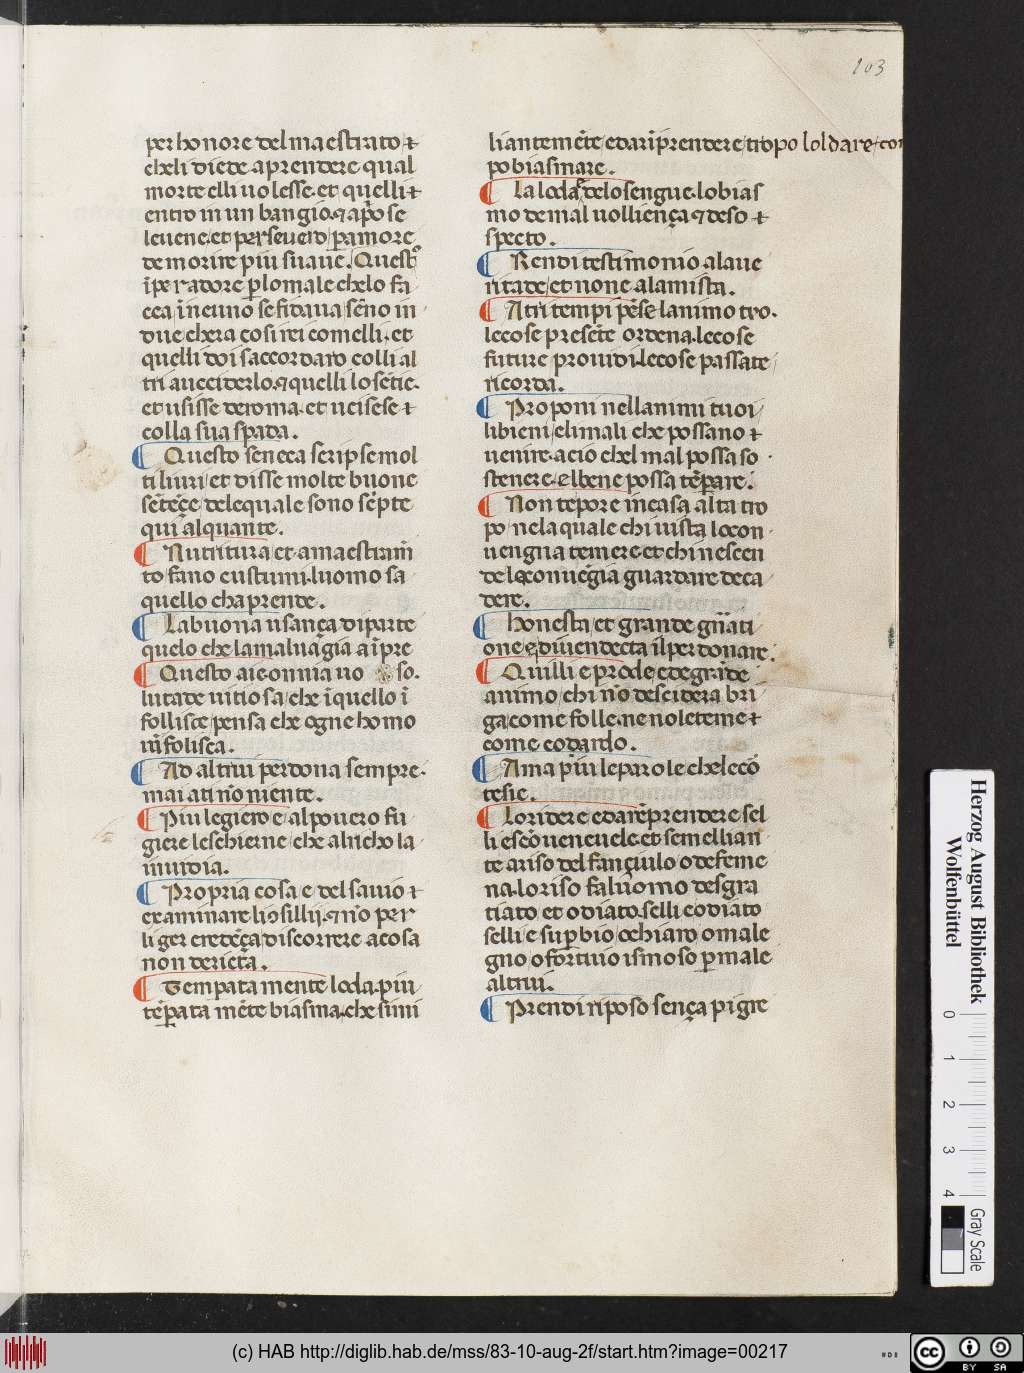 103
per honore del maestrato ⁊
cheli diede aprendere qual
morte elli uolesse. et quelli ⁊
entro in un bangio. ⁊ apͦo se
leuene. et perseuero ꝑamore
de morire piu suaue. Questo
īperadore ꝑlomale chelo fa
cea ineuno se fidaua. sēno in
due chera cosi rei comelli. et
quelli doi saccordaro colli al
tri aucciderlo. ⁊ quelli lo sētie.
et usisse de roma. et ucisese ⁊
colla sua spada.
¶ Questo seneca scripse mol
ti liuri et disse molte buone
sētēçe delequale sono septe
qui alquante.
¶ Nutritura et amaestram̄
to fano custumi. luomo sa
quello chaprende.
¶ La buona usança diparte
quelo che lamaluagia aīpre
¶ Questo aie. onnia uo so.
lutade uitiosa che īquello ī
follisce pensa che ogne homo
īfolisca.
¶ Ad altrui perdona sempre.
mai ati nō niente.
¶ Piu legiero e al pouero fu
giere leschierne che alricho la
inuidia.
¶ Propria cosa e del sauio ⁊
examinare li ⁊ nō per
liger credēça discorrere acosa
non dericta.
¶ Tempata mente loda. piu
tēꝑata mēte biasma. che simi
liantemēte e darīprendere tropo loldare. tro
po biasmare.
¶ La loda delosengue. lobias
mo de mal uolliença ⁊ deso ⁊
specto.
¶ Rendi testimonio alaue
ritade. et none alamista.
¶ Atri tempi pēse lanimo tro.
lecose presēte ordena. lecose
future prouidi. lecose passate
ricorda.
¶ Proponi nellanimi tuoi
libieni elimali che possano ⁊
uenire. acio chel mal possa so
stenere. elbene possa tēꝑare.
¶ Non tepore in casa alta tro
po nela quale chi uista lecon
uengna temere. et chi nescen
de leconuēgia guardare deca
dere.
¶ Honesta et grande
one e diuendecta il perdonare.
¶ Quilli e prode e de grāde
animo chi nō descidera bri
ga come folle. ne nole teme ⁊
come codardo.
¶ Ama piu le parole che lecō
tesie.
¶ Loridere e darēprendere sel
li escōueneuele. et semellian
te ariso del fançiulo o de feme
na. loriso fa luomo desgra
tiato et odiato. selli e odiato
selli e suꝑbio o chiaro o male
gno o fortiuo ismoso ꝑ male
altrui.
¶ Prendi riposo sença pigre
Herzog August Bibliothek
Wolfenbüttel
0 1 2 3 4
Gray Scale
(c) HAB http://diglib.hab.de/mss/83-10-aug-2f/start.htm?image=00217
HAB
cc BY SA